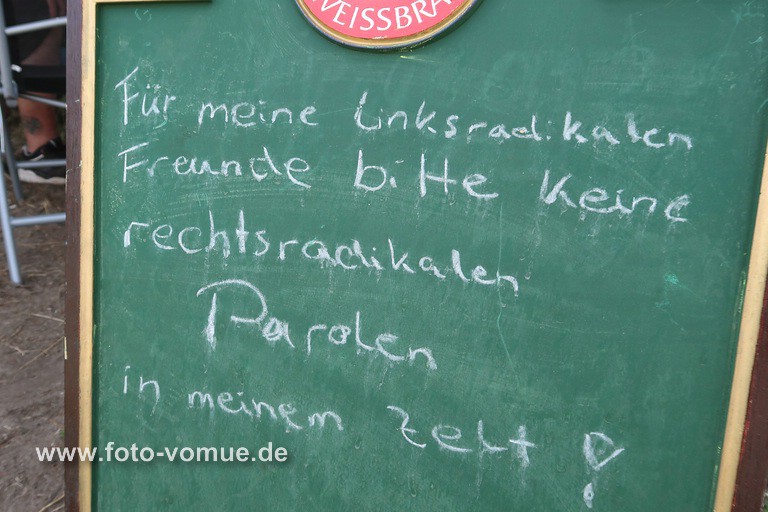 WEISSBRÄ
Für meine Linksradikalen
Freunde bitte keine
rechtsradikalen
Parolen
in meinem Zelt !
www.foto-vomue.de